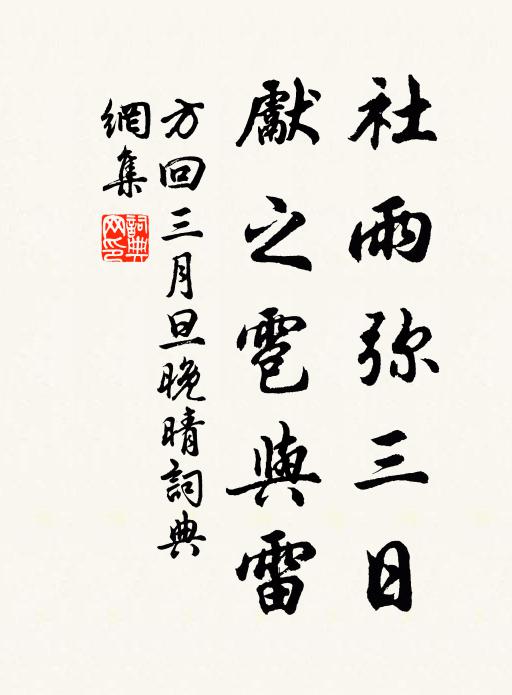 社雨弥三日
獻之雹與雷
方回三月旦晚晴詞典
網集
詞典網印